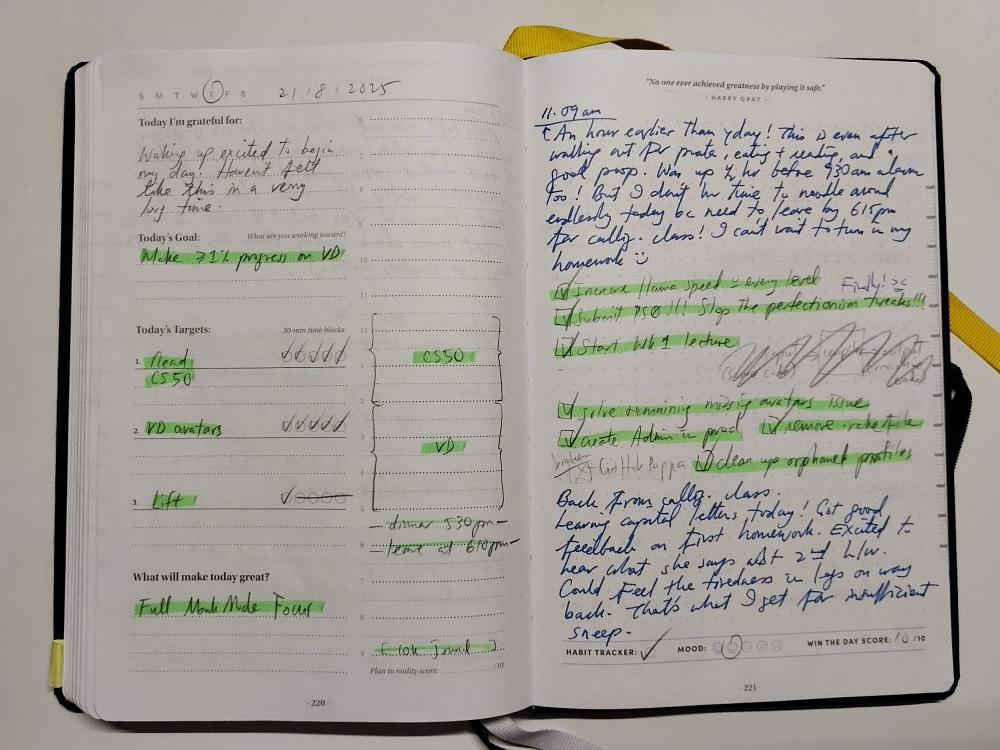 S M T W T F S 21/8/2025
Today I'm grateful for:
Waking up excited to begin
my day! Haven't felt
like this in a very
long time.
Today's Goal: What are you working toward?
Make ≥1% progress on VD
Today's Targets: 30-min time blocks:
1. Read ✓✓✓✓✓
CS50
2. VD avatars ✓✓✓✓✓
3. Lift ✓
What will make today great?
Full Monk Mode Focus
6
7
8
9
10
11
12
CS50
1
2
3
VD
4
5
- dinner 530pm -
6
- leave at 610pm -
7
8
9
Plan to reality score: /10
- 220 -
"No one ever achieved greatness by playing it safe."
- HARRY GRAY -
11.09am
↑ An hour earlier than yday! This is even after
walking out for prata, eating + reading, and a
good poop. Was up ½ hr before 930am alarm
too! But I don't hv time to noodle around
endlessly today bc need to leave by 615pm
for callig. class! I can't wait to turn in my
homework
☑ Increase llama speed every level
Finally!
☑ Submit PS0!!! Stop the perfectionism tweaks!!!
☑ Start Wk 1 lecture
☑ solve remaining missing avatars issue
☑ create Admin in prod ☑ remove rake file
GitHub
☑ clean up orphaned profiles
Back from callig. class.
Learning capital letters today! Got good
feedback on first homework. Excited to
hear what she says abt 2nd h/w.
Could feel the tiredness in legs on way
back. That's what I get for insufficient
sneep.
HABIT TRACKER: ✓ MOOD: WIN THE DAY SCORE: 10 /10
- 221 -